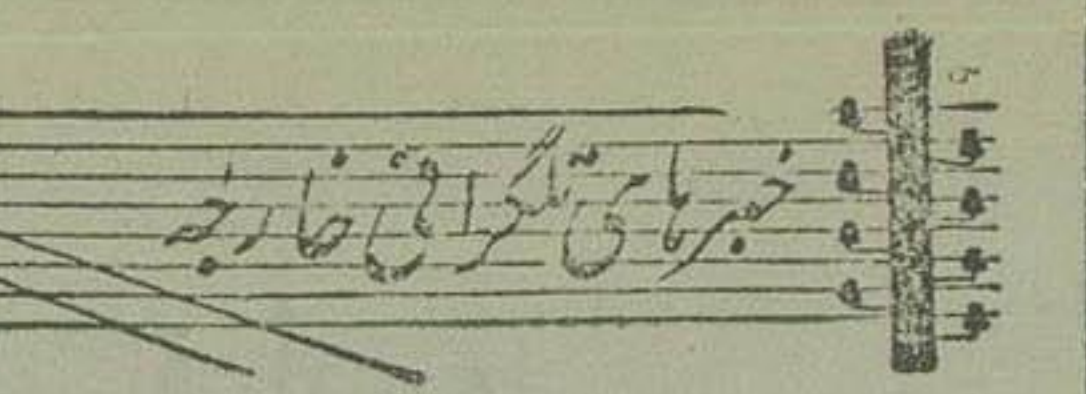 خبرهای تلگرافی خارجه